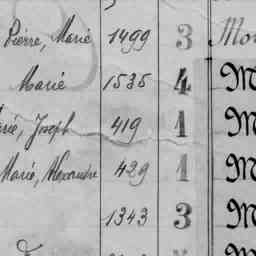 Pierre, Marie 1499 3 Mo
Marie 1535 4 M
rie, Joseph 419 1 M
Marie, Alexandre 429 1 M
1343 3 M